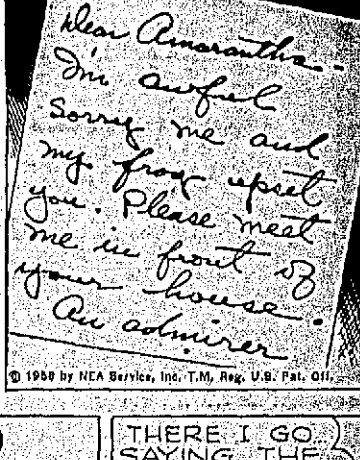 Dear Amarantha--
I'm awful
sorry me and
my frog upset
you. Please meet
me in front of
your house.
An admirer
© 1958 by NEA Service, Inc. T.M. Reg. U.S. Pat. Off.
THERE I GO..
SAYING THE